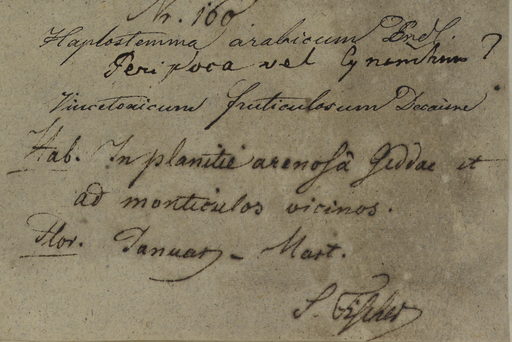 Nr. 160
Haplostemma arabicum Endl.
Peripoca vel Cynanchum ?
Vincetoxicum fruticulosum Decaisne
Hab. In planitie arenosâ Geddae et
ad monticulos vicinos.
Flor. Januar - Mart.
S. Fischer